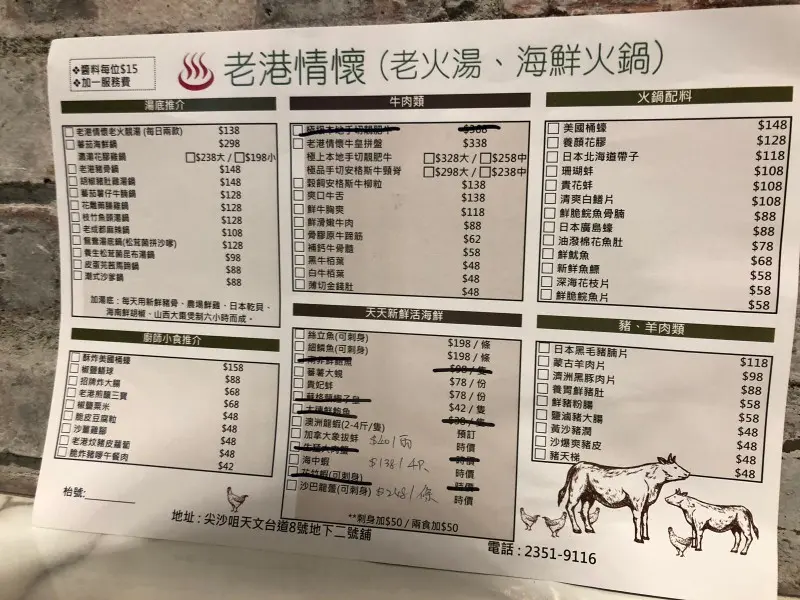 ❖醬料每位$15
❖加一服務費
老港情懷（老火湯、海鮮火鍋）
湯底推介
老港情懷老火靚湯 (每日兩款) $138
蕃茄海鮮鍋 $298
濃湯花膠雞鍋 □$238大 / □$198小
老港豬骨鍋 $148
胡椒豬肚雞湯鍋 $148
蕃茄薯仔牛腩鍋 $128
花雕醉雞鍋 $128
枝竹魚頭湯鍋 $128
老成都麻辣鍋 $108
鴛鴦湯底鍋(松茸菌拼沙嗲) $128
養生松茸菌昆布湯鍋 $98
皮蛋芫茜馬蹄鍋 $88
潮式沙爹鍋 $88
加湯底：每天用新鮮豬骨、農場鮮雞、日本乾貝、
海南鮮胡椒、山西大棗煲制六小時而成。
廚師小食推介
酥炸美國桶蠔 $158
椒鹽鱔球 $88
招牌炸大腸 $68
老港煎釀三寶 $68
椒鹽粟米 $48
脆皮豆腐粒 $48
沙薑雞腳 $48
老港炆豬皮蘿蔔 $48
脆炸豬啤午餐肉 $42
枱號:
牛肉類
極級本地手切靚肥牛 $368
老港情懷牛皇拼盤 $338
極上本地手切靚肥牛 □$328大 / □$258中
極品手切安格斯牛頸脊 □$298大 / □$238中
穀飼安格斯牛柳粒 $138
爽口牛舌 $138
鮮牛胸爽 $118
鮮滑嫩牛肉 $88
骨膠原牛蹄筋 $62
補鈣牛骨髓 $58
黑牛栢葉 $48
白牛栢葉 $48
薄切金錢肚 $48
天天新鮮活海鮮
絲立魚(可刺身) $198 / 條
細鱗魚(可刺身) $198 / 條
南非鮮鮑魚 $98 / 隻
蕃薯大蜆 $78 / 份
貴妃蚌 $78 / 份
$42 / 隻
大連鮮鮑魚 $38 / 隻
澳洲龍蝦(2-4斤/隻) 預訂
加拿大象拔蚌 $40/兩 時價
時價
海中蝦 $138/4只 時價
花竹蝦(可刺身) 時價
沙巴龍躉(可刺身) $248/條 時價
**刺身加$50 / 兩食加$50
火鍋配料
美國桶蠔 $148
養顏花膠 $128
日本北海道帶子 $118
珊瑚蚌 $108
貴花蚌 $108
清爽白鱔片 $108
鮮脆鯇魚骨腩 $88
日本廣島蠔 $88
油潑棉花魚肚 $78
鮮魷魚 $68
新鮮魚鰾 $58
深海花枝片 $58
鮮脆鯇魚片 $58
豬、羊肉類
日本黑毛豬腩片 $118
蒙古羊肉片 $98
濟洲黑豚肉片 $88
養胃鮮豬肚 $58
鮮豬粉腸 $58
鹽滷豬大腸 $58
黃沙豬潤 $48
沙爆爽豬皮 $48
豬天梯 $48
地址 : 尖沙咀天文台道8號地下二號舖
電話 : 2351-9116